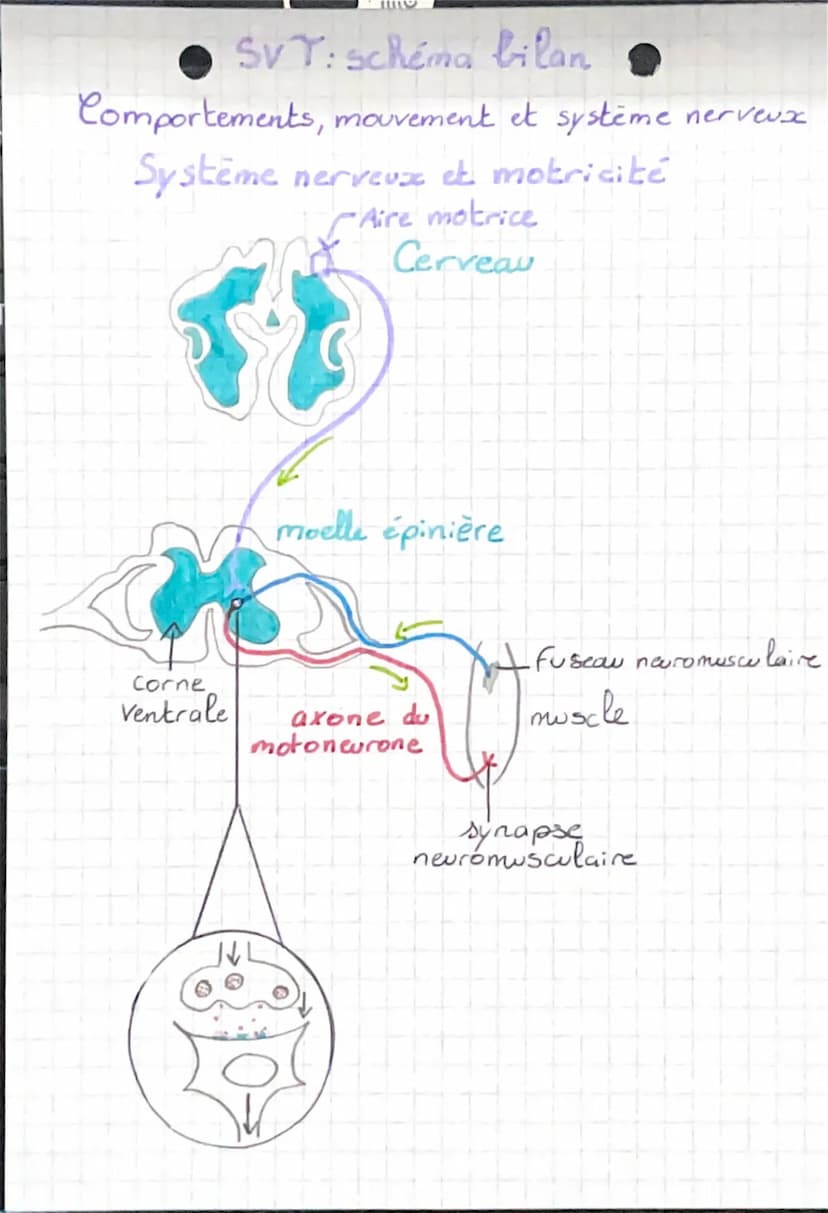 SVT: schéma bilan
Comportements, mouvement et système nerveux
Système nerveux et motricité
Aire motrice
Cerveau
moelle épinière
corne
ventrale
axone du
motoneurone
fuseau neuromusculaire
muscle
synapse
neuromusculaire